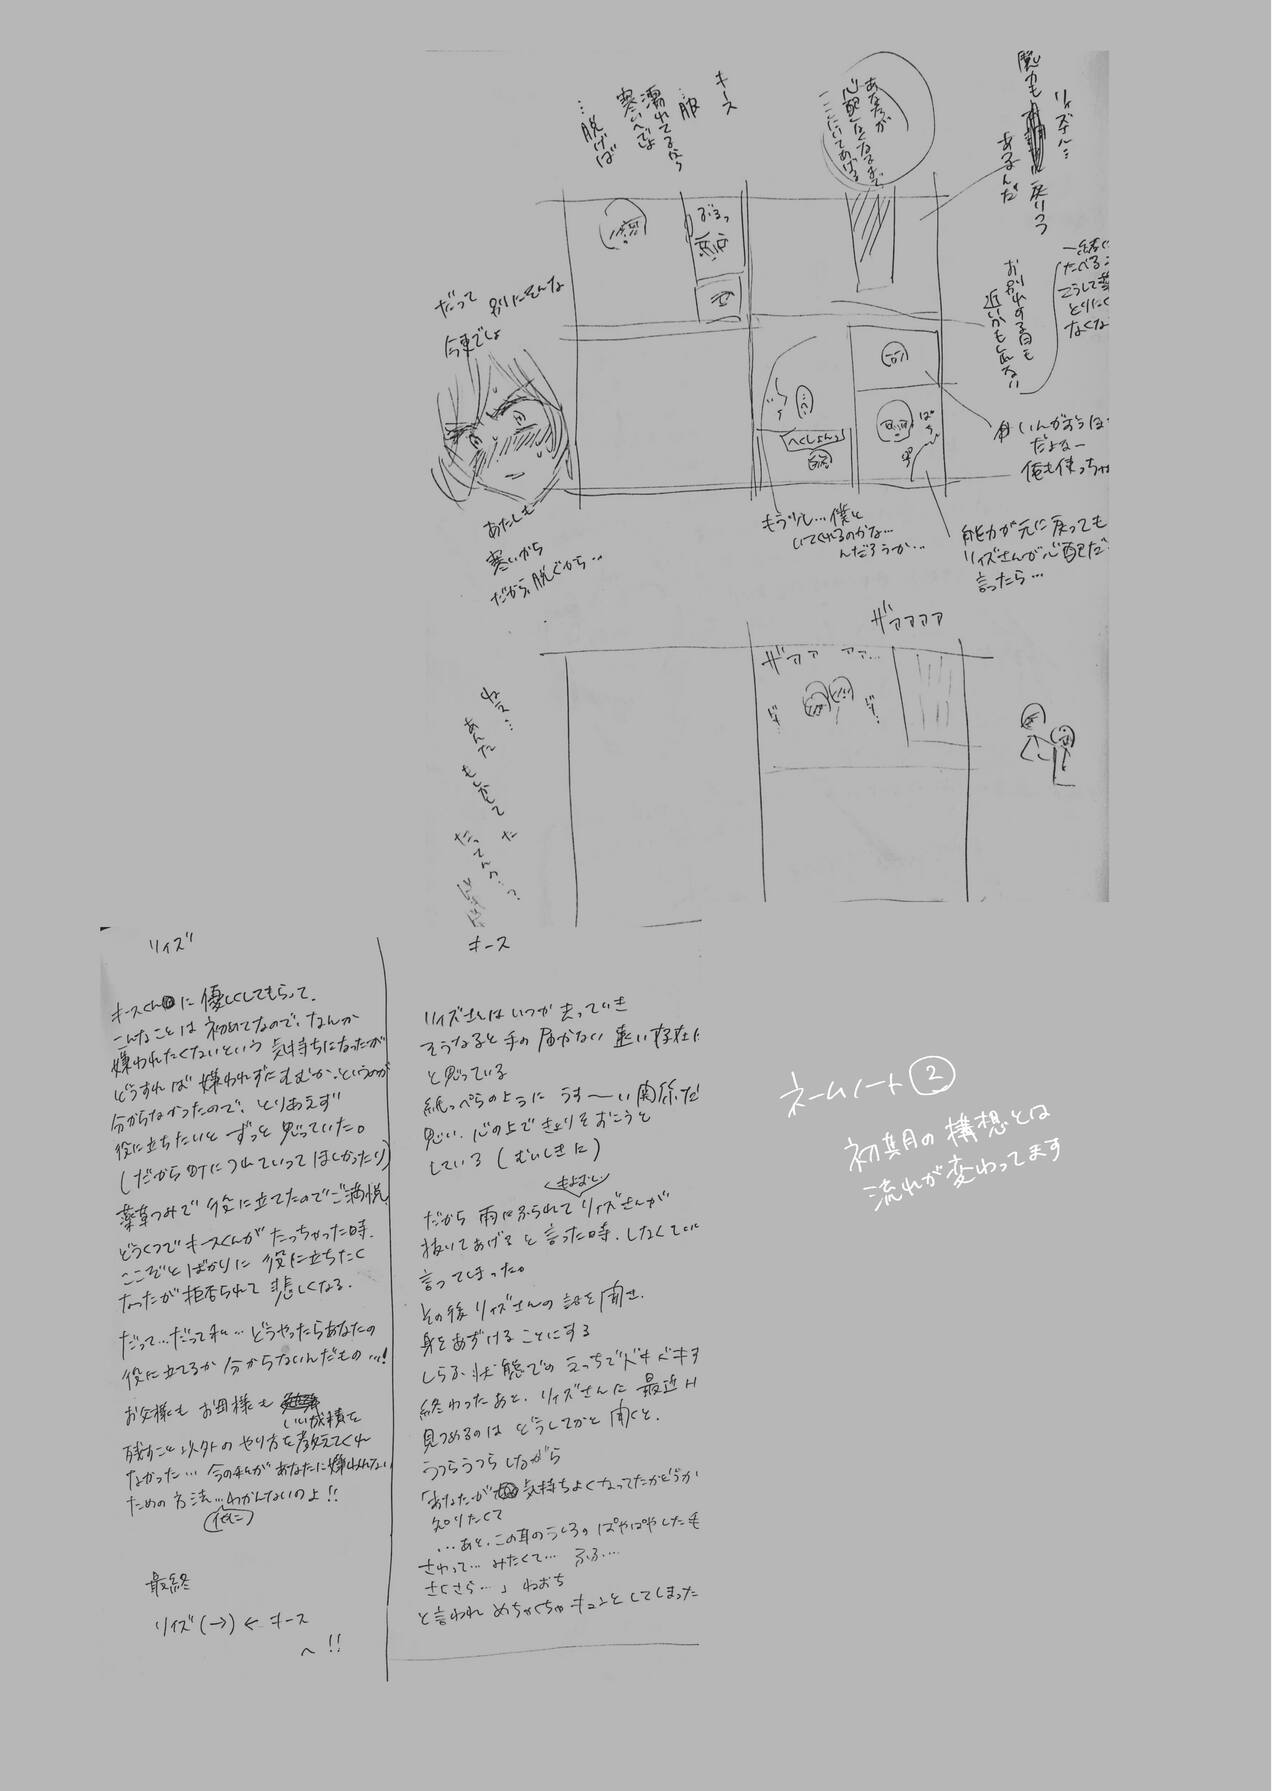 リィズ…
魔力も戻りつつ
あるんだ
あなたが
心配なくなるまで
ここにいてあげる
キース
…服
濡れてるから
寒いでしょ
…脱げば
一緒に
たべる
こうして薬
とりにく
なくな
お別れする日も
近いかも しれない
ぶるっ
だって 別にそんな
今更でしょ
へくしょんっ
ぱち
だよなー
俺も使っちゃ
あたしも
寒いから
だから、脱ぐから…
もう少し…僕と
いてくれるのかな…
んだろうか…
能力が元に戻っても
リィズさんが心配だ
言ったら…
ザァァァァ
ザァァ ァァ…
ねえ…
あんた
もしかして
たってんの…?
リィズ
キースくんに優しくしてもらって、
こんなことは初めてなので、なんか
嫌われたくないという気持ちになったが
どうすれば嫌われずにすむか、というのが
分からなかったので、とりあえず
役に立ちたいとずっと思っていた。
(だから町につれていってほしかったり)
薬草つみで役に立てたのでご満悦
どうくつでキースくんがたっちゃった時、
ここぞとばかりに役に立ちたく
なったが拒否られて悲しくなる。
だって…だって私…どうやったらあなたの
役に立てるか分からないんだもの…!
お父様もお母様も
いい成績を
残すこと以外のやり方を教えてくれ
なかった…今の私があなたに嫌われない
ための方法…わかんないのよ!!
(他に)
最終
リィズ(→)←キース
へ!!
キース
リィズさんはいつか去っていき
そうなると手の届かない遠い存在に
と思っている
紙っぺらのようにうす〜い関係だ
思い、心の上できょりをおこうと
している(むいしきに)
だから雨にふられてリィズさんが
抜いてあげると言った時、しなくていい
言ってしまった。
その後リィズさんの話を聞き、
身をあずけることにする
しらふ状態でのえっちでドキドキす
終わったあと、リィズさんに最近
見つめるのはどうしてかと聞くと、
うつらうつらしながら
「あなたが気持ちよくなってたかどうか
知りたくて
…あと、この耳のうしろのぱやぱやした毛
さわって…みたくて… ふふ…
さくさら…」ねおち
と言われめちゃくちゃキュンとしてしまった
ネームノート②
初期の構想とは
流れが変わってます